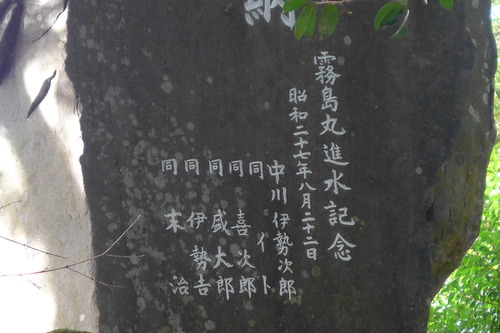 納
霧島丸進水記念
昭和二十七年八月二十二日
中川伊勢次郎
同 イト
同 喜次郎
同 盛大郎
同 伊勢吉
同 末治